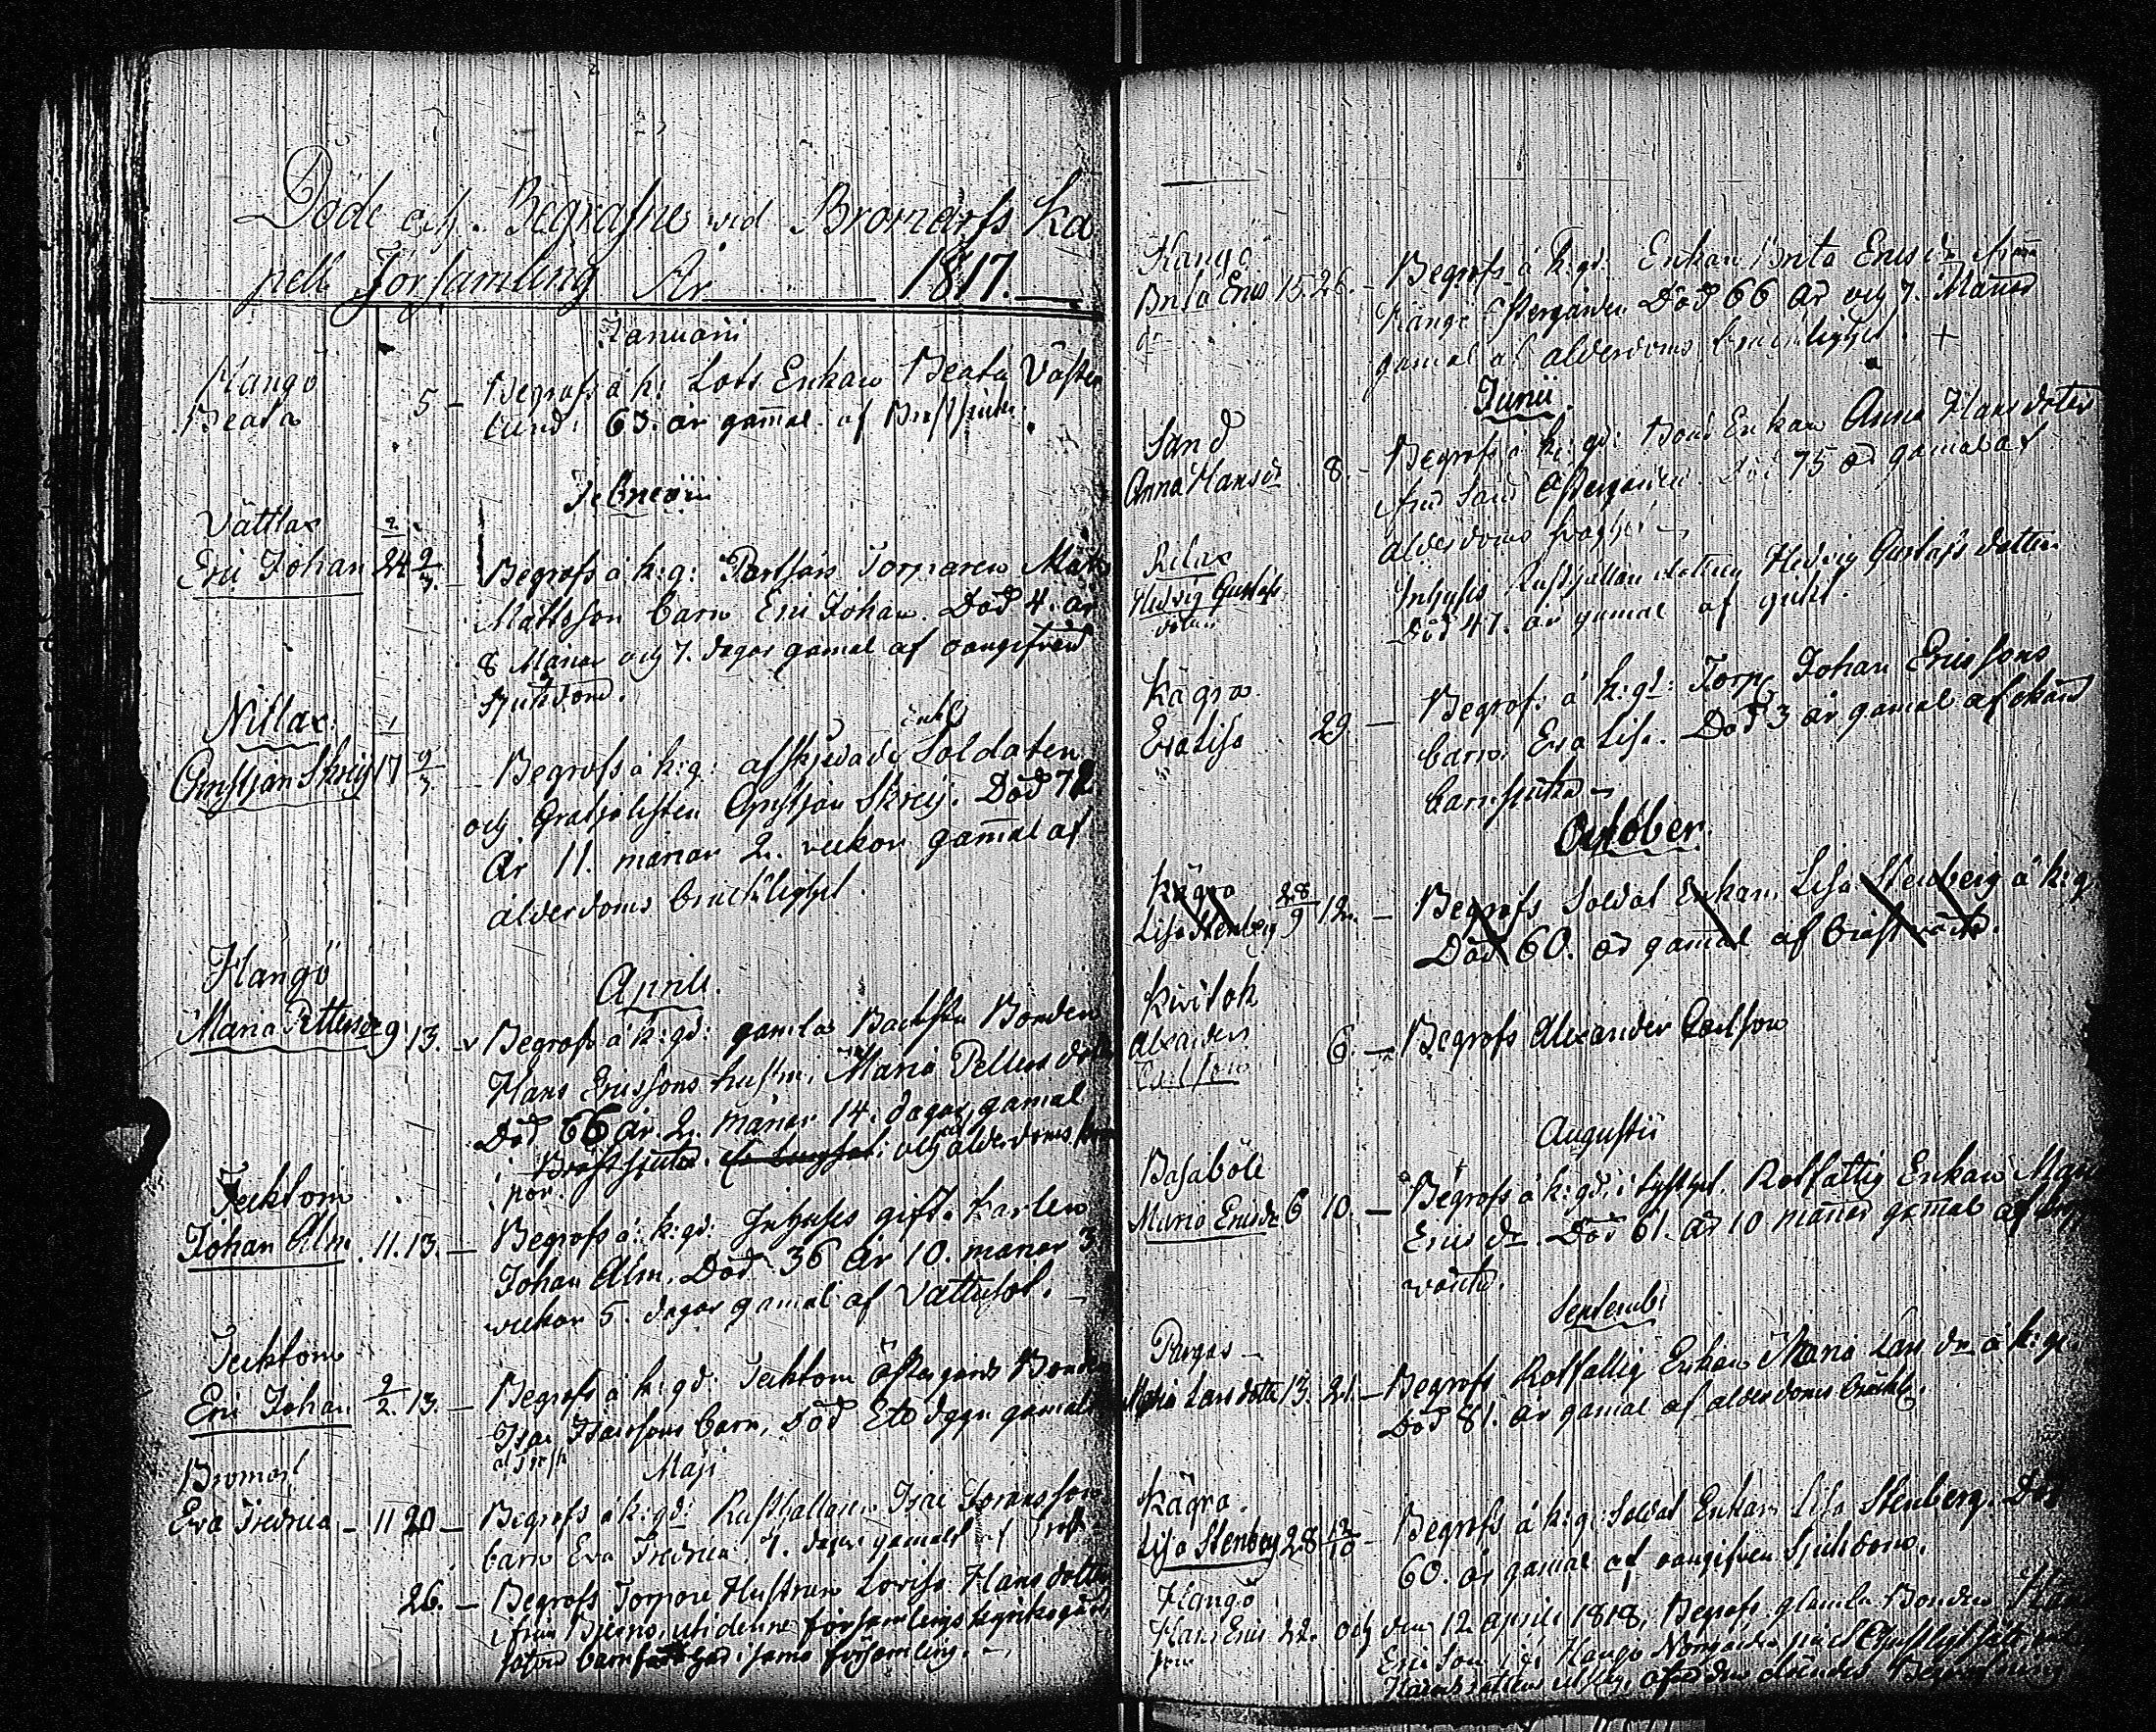 Döde och Begrafne vid Bromarfs Ka
pell Församling År 1817.
Januarii
Hangö
Beata 5 – Begrofs å k: Lots Enkan Beata Väster
lund. 63. år gam̄al. af Bröstsiuka.
Februarii
Vättlax
Eric Johan 24 2/3 – Begrofs å k:g: Torparen
Mattsson barn Eric Johan. Död 4. år
8 Månar och 7. dagar gamal af oangifven
Sjukdom.
Nitlax
Christjan Skreij 17 2/3 Begrofs å k:g: afskjedade Soldaten
och Christjan Skreij. Död 72
År 11. månar 2. veckor gam̄al af
ålderdoms bräcklighet.
Hangö
Aprili.
Maria Petters 9 13. – Begrofs å k:gd: gamla Bonden
Hans Ericssons hustru, Maria Petters
Död 66 år 2. månar 14. dagar gamal
i Bröstsjuka och ålderdoms
Tecktom
Johan Alm 11. 13. – Begrofs å k:gd: Inhyses gift Karlen
Johan Alm. Död 36 År 10. månar 3
veckor 5. dagar gamal af Vattusot.
Tecktom
Eric Johan 9/2. 13. – Begrofs å k:gd: Tecktom Östergårds Bonden
Isac Isacssons barn, Död Ett dygn gamalt
Maji
Bromarf
Eva Fredrica – 11 20 – Begrofs å k:gd: Rusthållaren Isac
barn Eva Fredrica 7. dagar gamalt af
26. – Begrofs Torpare Hustrun Lovisa Hans dotter
ifrån Bjerno, uti denne församlings kyrkogård
såsom barn född i samma församling. –
Hangö
Brita Erics 15. 26. – Begrofs å k:gd: Enkan Brita Erics dr ifrån
dr Hangö Östergården. Död 66 År och 7. Månar
gamal af ålderdoms bräcklighet. +
Junii.
Sand
Anna Hansd 8. – Begrofs å k:gd: Bond Enkan Anna Hansdoter
ifrån Sand Östergården. Död 75 år gamal af
ålderdoms svaghet –
Rilax
Hedvig Gustafs
doter Inhyses Hedvig Gustafs dotter
Död 47. år gamal af gickt.
Kägra
Eva Lisa 29. – Begrofs å k:gd: Torp Johan Ericssons
barn Eva Lisa. Död 3 år gamal af okänd
barnsjuka –
October.
Kägra
Lisa Stenberg 28/9 12. – Begrofs Soldat Enkan, Lisa Stenberg å k:g.
Död 60. år gam̄al af
Kivitok
Alexander
Carlsson 6. – Begrofs Alexander Carlsson
Augusti
Basaböle
Maria Ericsdr 6 10. – Begrofs å k:gd: Rotfattig Enkan Maria
Erics dr. Död 61. år 10 månar gam̄al af
Septemb:
Pargas –
Maria Larsdotter 13. 21. – Begrofs Rotfattig Enkan Maria Lars dr å k:g.
Död 81. år gamal af ålderdoms
Kägra.
Lisa Stenberg 28 12/10 – Begrofs å k:g: Soldat Enkan Lisa Stenberg. Död
60. år gamal af oangifven Sjukdom.
Hangö
Hans Erics 22. och den 12 Aprili 1818, Begrofs gamla Bonden
son Ericson Hangö
Begrafning